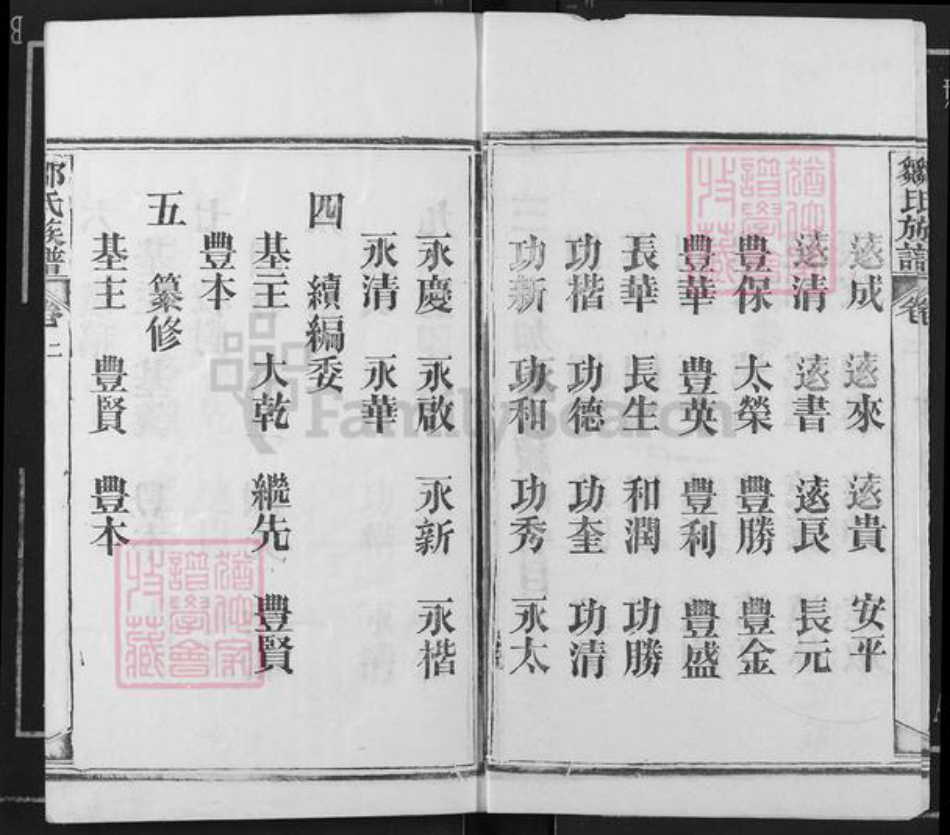 鄒氏族譜 卷
遠成 遠來 遠貴 安平
遠清 遠書 遠良 長元
豐保 太榮 豐勝 豐金
豐華 豐英 豐利 豐盛
長華 長生 和潤 功勝
功楷 功德 功奎 功清
功新 功和 功秀 永太
永慶 永啟 永新 永楷
永清 永華
四 續編委
基主 大乾 繼先 豐賢
豐本
五 纂修
基主 豐賢 豐本
鄒氏族譜 卷 二
FamilySearch